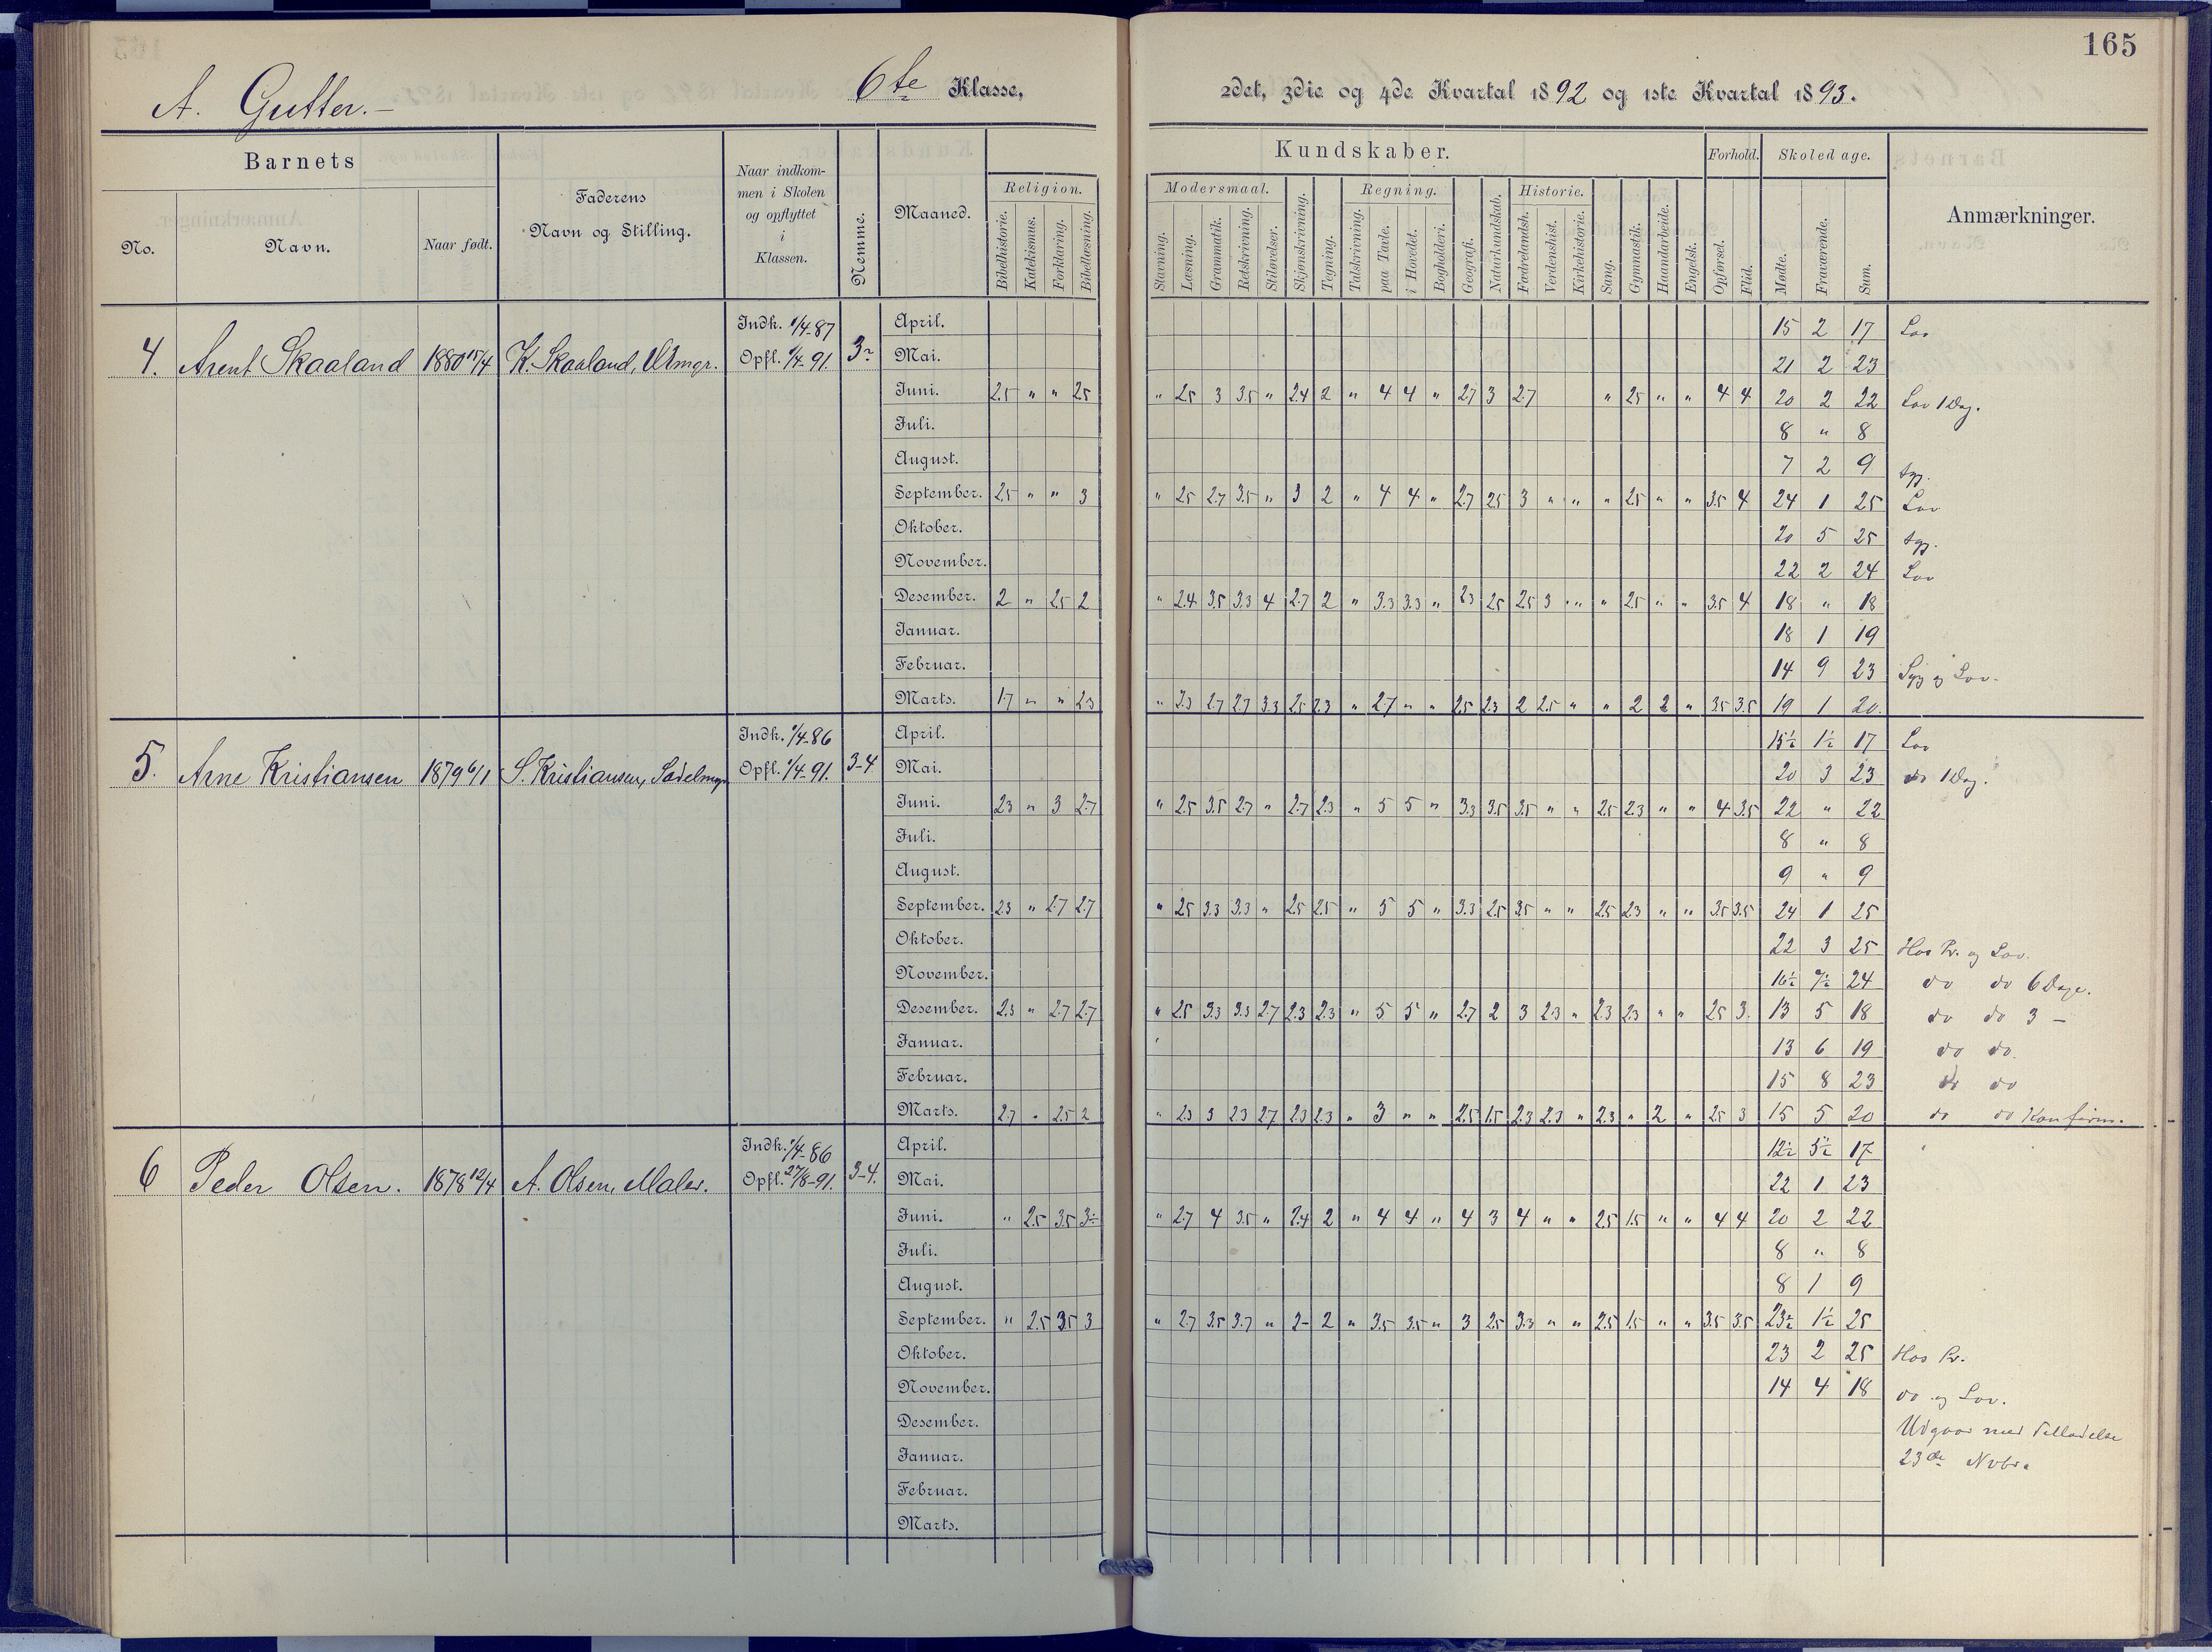 165
A. Gutter.-
6te Klasse,
2det, 3die og 4de Kvartal 1892 og 1ste Kvartal 1893.
Barnets
No.
Navn.
Naar født.
Faderens
Navn og Stilling.
Naar indkom-
men i Skolen
og opflyttet
i
Klassen.
Nemme.
Maaned.
Kundskaber.
Religion.
Bibelhistorie.
Katekismus.
Forklaring.
Bibellæsning.
Modersmaal.
Stavning.
Læsning.
Grammatik.
Retskrivning.
Stiløvelser.
Skjønskrivning.
Tegning.
Regning.
Talskrivning.
paa Tavle.
i Hovedet.
Bogholderi.
Geografi.
Naturkundskab.
Historie.
Fædrelandsh.
Verdenshist.
Kirkehistorie.
Sang.
Gymnastik.
Haandarbeide.
Engelsk.
Forhold.
Opførsel.
Flid.
Skoledage.
Mødte.
Fraværende.
Sum.
Anmærkninger.
4. Arent Skaaland 1880 15/4 K. Skaaland, Uhrmgr. Indk. 1/4-87 Opfl. 1/4-91.
April. 15 2 17 Lov
Mai. 21 2 23
Juni. 2.5 " " 2.5 " 2.5 3 3.5 " 2.4 2 " 4 4 " 2.7 3 2.7 " 2.5 " " 4 4 20 2 22 Lov 1 Dag.
Juli. 8 " 8
August. 7 2 9 syg.
September. 2.5 " " 3 " 2.5 2.7 3.5 " 3 2 " 4 4 " 2.7 2.5 3 " " " 2.5 " " 3.5 4 24 1 25 Lov
Oktober. 20 5 25 syg.
November. 22 2 24 Lov
Desember. 2 " 2.5 2 " 2.4 3.5 3.3 4 2.7 2 " 3.3 3.3 " 2.3 2.5 2.5 3 " " 2.5 " " 3.5 4 18 " 18
Januar. 18 1 19
Februar. 14 9 23 Syg og Lov.
Marts. 1.7 " " 2.3 " 2.3 2.7 2.7 3.3 2.5 2.3 " 2.7 " " 2.5 2.3 2 2.5 " " 2 2 " 3.5 3.5 19 1 20.
5. Arne Kristiansen 1879 6/1 S. Kristiansen, Sadelmgr. Indk. 1/4-86 Opfl. 1/4-91. 3-4
April. 15½ 1½ 17 Lov
Mai. 20 3 23 do 1 Dag.
Juni. 2.3 " 3 2.7 " 2.5 3.5 2.7 " 2.7 2.3 " 5 5 " 3.3 3.5 3.5 " " 2.5 2.3 " " 4 3.5 22 " 22
Juli. 8 " 8
August. 9 " 9
September. 2.3 " 2.7 2.7 " 2.5 3.3 3.3 " 2.5 2.5 " 5 5 " 3.3 2.5 3.5 " " 2.5 2.3 " " 3.5 3.5 24 1 25
Oktober. 22 3 25 Hos Pr. og Lov.
November. 16½ 7½ 24 do do 6 Dage.
Desember. 2.3 " 2.7 2.7 " 2.5 3.3 3.3 2.7 2.3 2.3 " 5 5 " 2.7 2 3 2.3 " 2.3 2.3 " " 2.5 3. 13 5 18 do do 3 -
Januar. 13 6 19 do do.
Februar. 15 8 23 do do
Marts. 2.7 " 2.5 2 " 2.3 3 2.3 2.7 2.3 2.3 " 3 " " 2.5 1.5 2.3 2.3 " 2.3 " 2 " 2.5 3 15 5 20 do do Konfirm.
6 Peder Olsen. 1878 12/4 A. Olsen, Maler. Indk. 1/4-86 Opfl. 27/8-91. 3-4.
April. 12½ 5½ 17
Mai. 22 1 23
Juni. " 2.5 3.5 3÷ " 2.7 4 3.5 " 2.4 2 " 4 4 " 4 3 4 " " 2.5 1.5 " " 4 4 20 2 22
Juli. 8 " 8
August. 8 1 9
September. " 2.5 3.5 3 " 2.7 3.5 3.7 " 2- 2 " 3.5 3.5 " 3 2.5 3.3 " " 2.5 1.5 " " 3.5 3.5 23½ 1½ 25
Oktober. 23 2 25 Hos Pr.
November. 14 4 18 do og Lov.
Desember. Udgaar med Tilladelse
Januar. 23de Novbr.
Februar.
Marts.